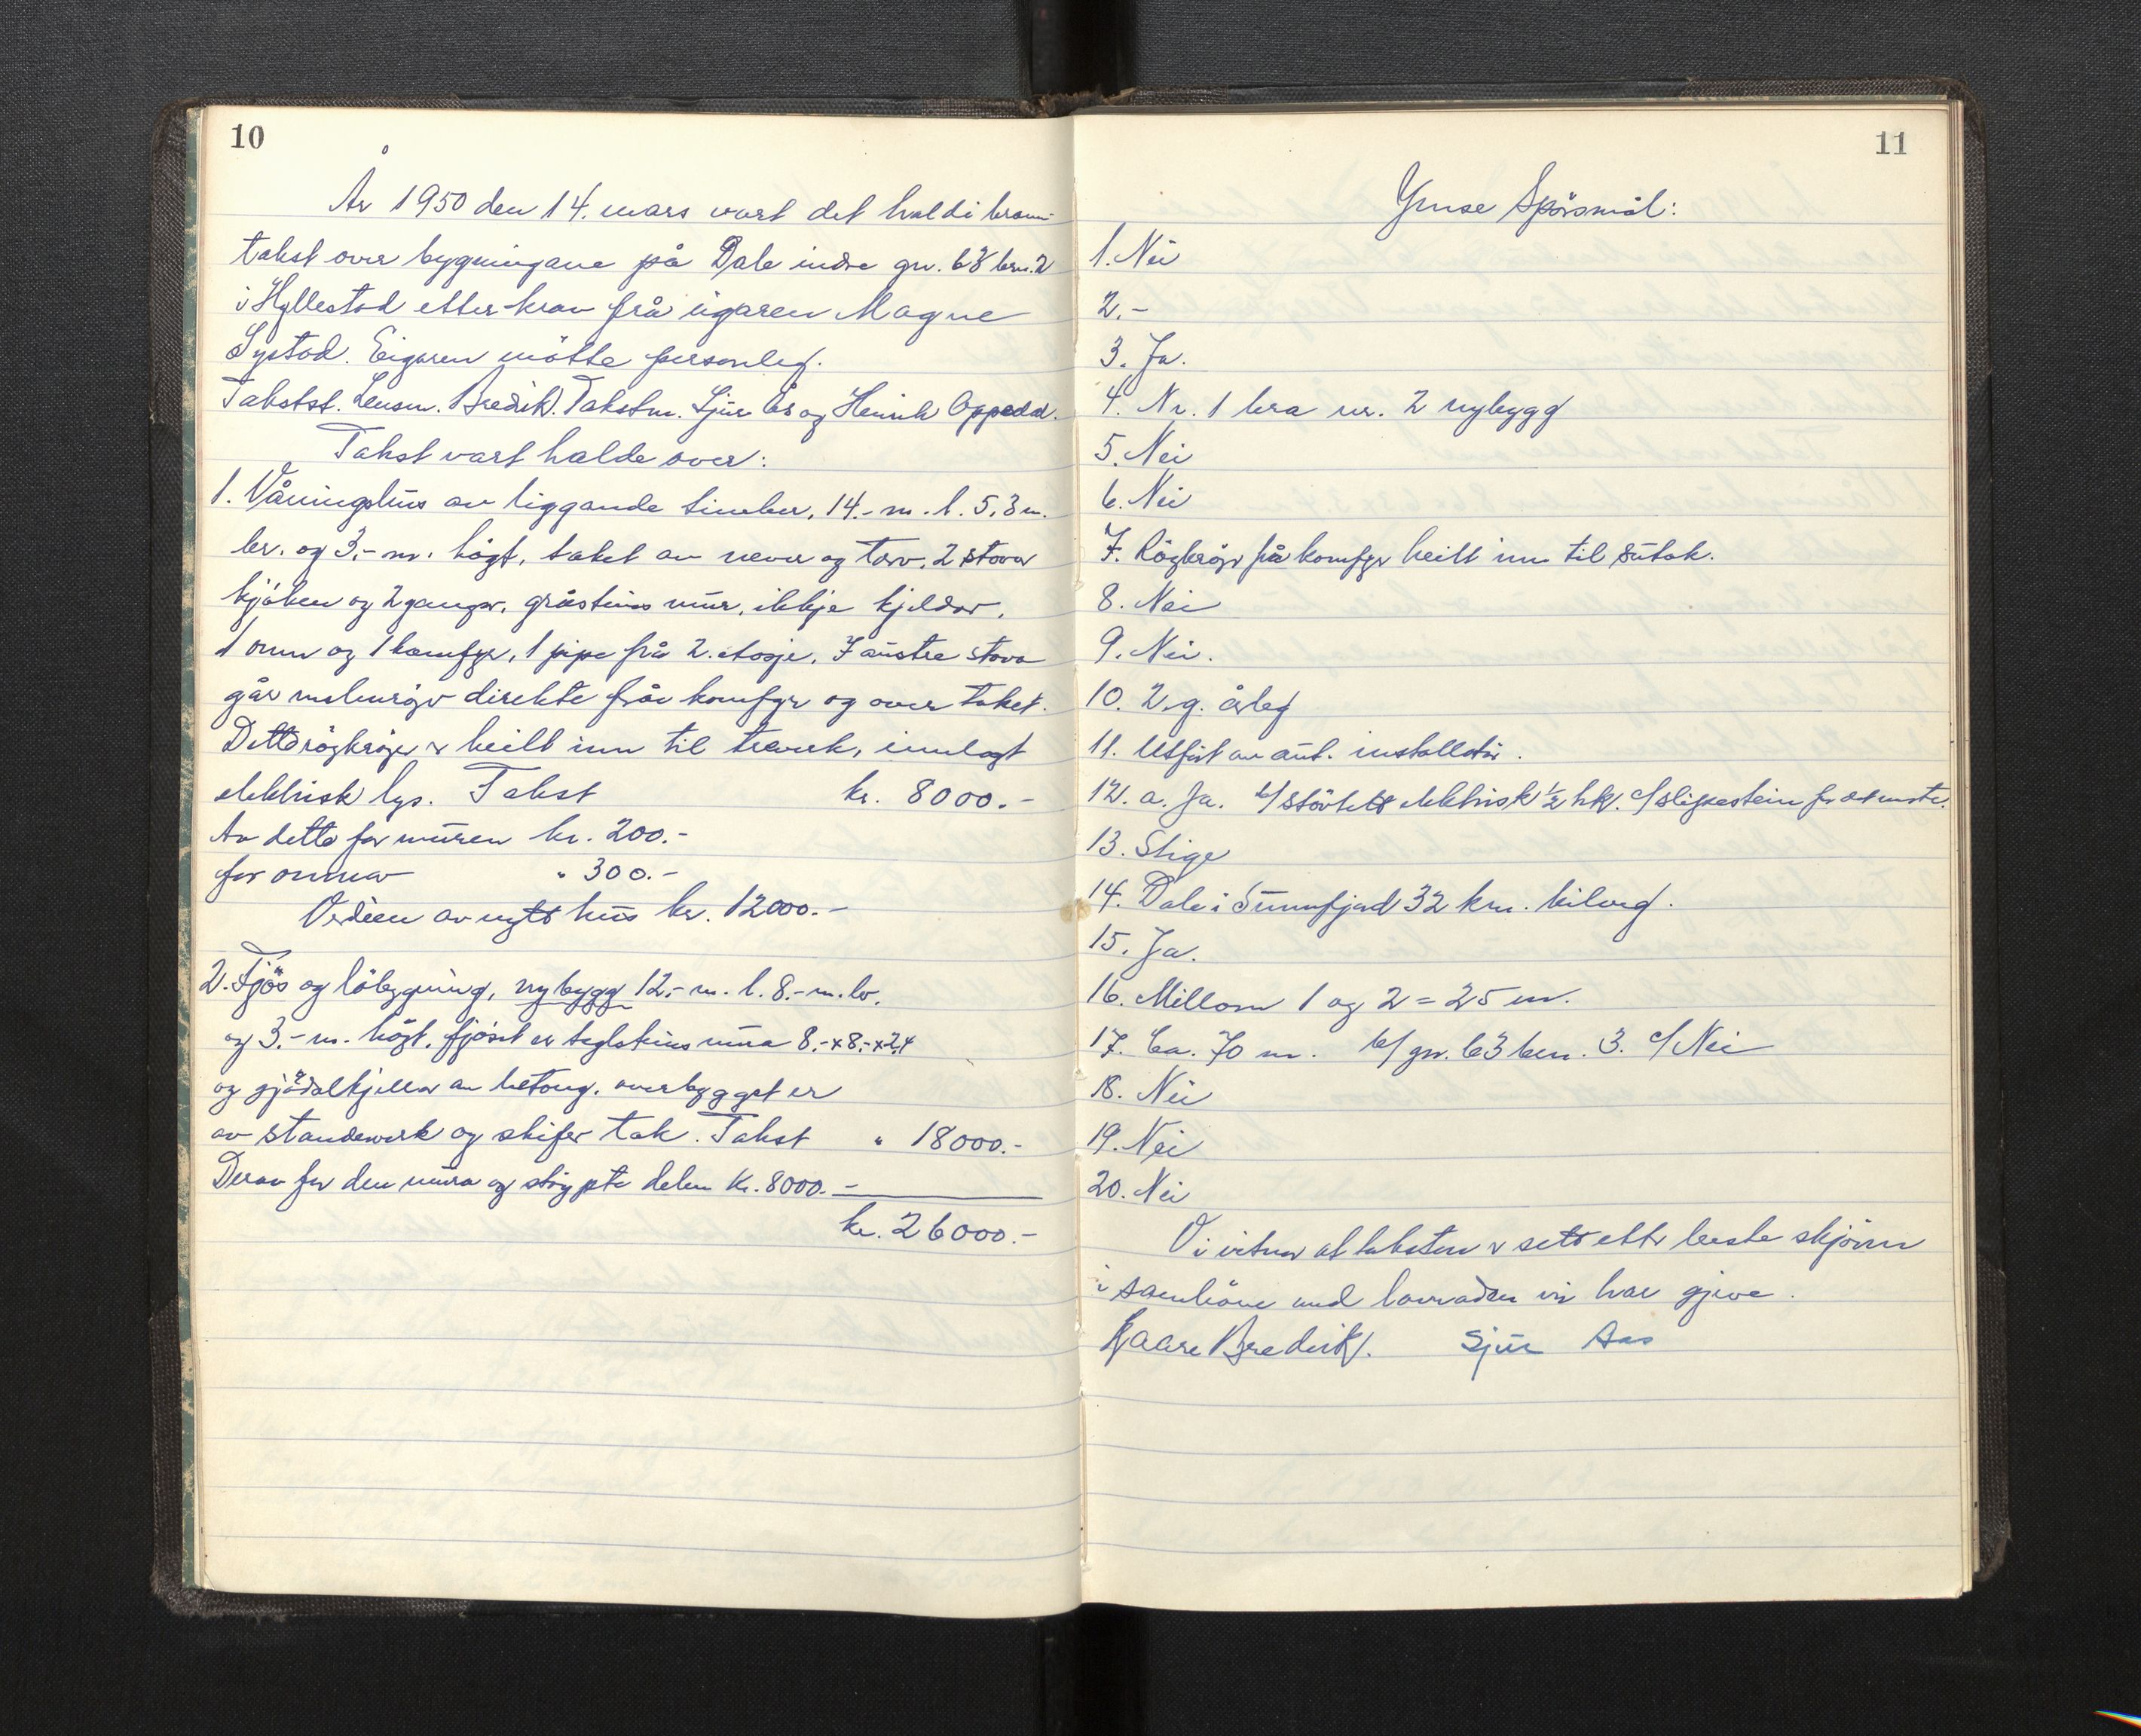 10
År 1950 den 14. mars vart det haldi brann-
takst over bygningane på Dale indre gn. 63 brn. 2
i Hyllestad etter krav frå eigaren Magne
Systad. Eigaren møtte personleg.
Takstst. Lensm. Bredvik. Takstm. Sjur Ås og Henrik Oppedal.
Takst vart halde over:
1. Våningshus av liggande timber, 14.- m. l. 5,3 m.
br. og 3.- m. högt, taket av never og torv. 2 stover
kjöken og 2 ganger, gråsteins mur, ikkje kjeldar.
1 omn og 1 komfyr, 1 pipe frå 2. etasje. I austre stova
går röykröyr direkte från komfyr og over taket.
Dette röykröyr er heilt inn til treverk, innlagt
elektrisk lys. Takst kr. 8000.-
Av dette for muren kr. 200.-
for omnar " 300.-
Verdien av nytt hus kr. 12000.-
2. Fjös og löbygning, nybygg 12.- m. l. 8.- m. br.
og 3.- m. högt. fjöset er teglsteins mura 8.- x 8.- x 2,4
og gjödslkjellar av betong. overbygget er
av standeverk og skifer tak. Takst " 18000.-
Derav for den mura og støypte delen kr. 8000.-
kr. 26000.-
11
Ymse Spörsmål:
1. Nei
2. -
3. Ja.
4. Nr. 1 bra nr. 2 nybygg
5. Nei
6. Nei
7. Röykröyr på komfyr heilt inn til sutak.
8. Nei
9. Nei.
10. 2. g. årleg
11. Utfört av aut. installatör.
12. a. Ja. b/ elektrisk 1/2 hk. c/ slipestein
13. Stige
14. Dale i Sunnfjord 32 km. bilveg.
15. Ja.
16. Millom 1 og 2 = 25 m.
17. Ca. 70 m. b/ gn. 63 brn. 3. c/ Nei
18. Nei
19. Nei
20. Nei
Vi vitnar at taksten er sett etter beste skjönn
i samhöve med lovnaden vi har gjeve.
Kaare Bredvik. Sjur Aas